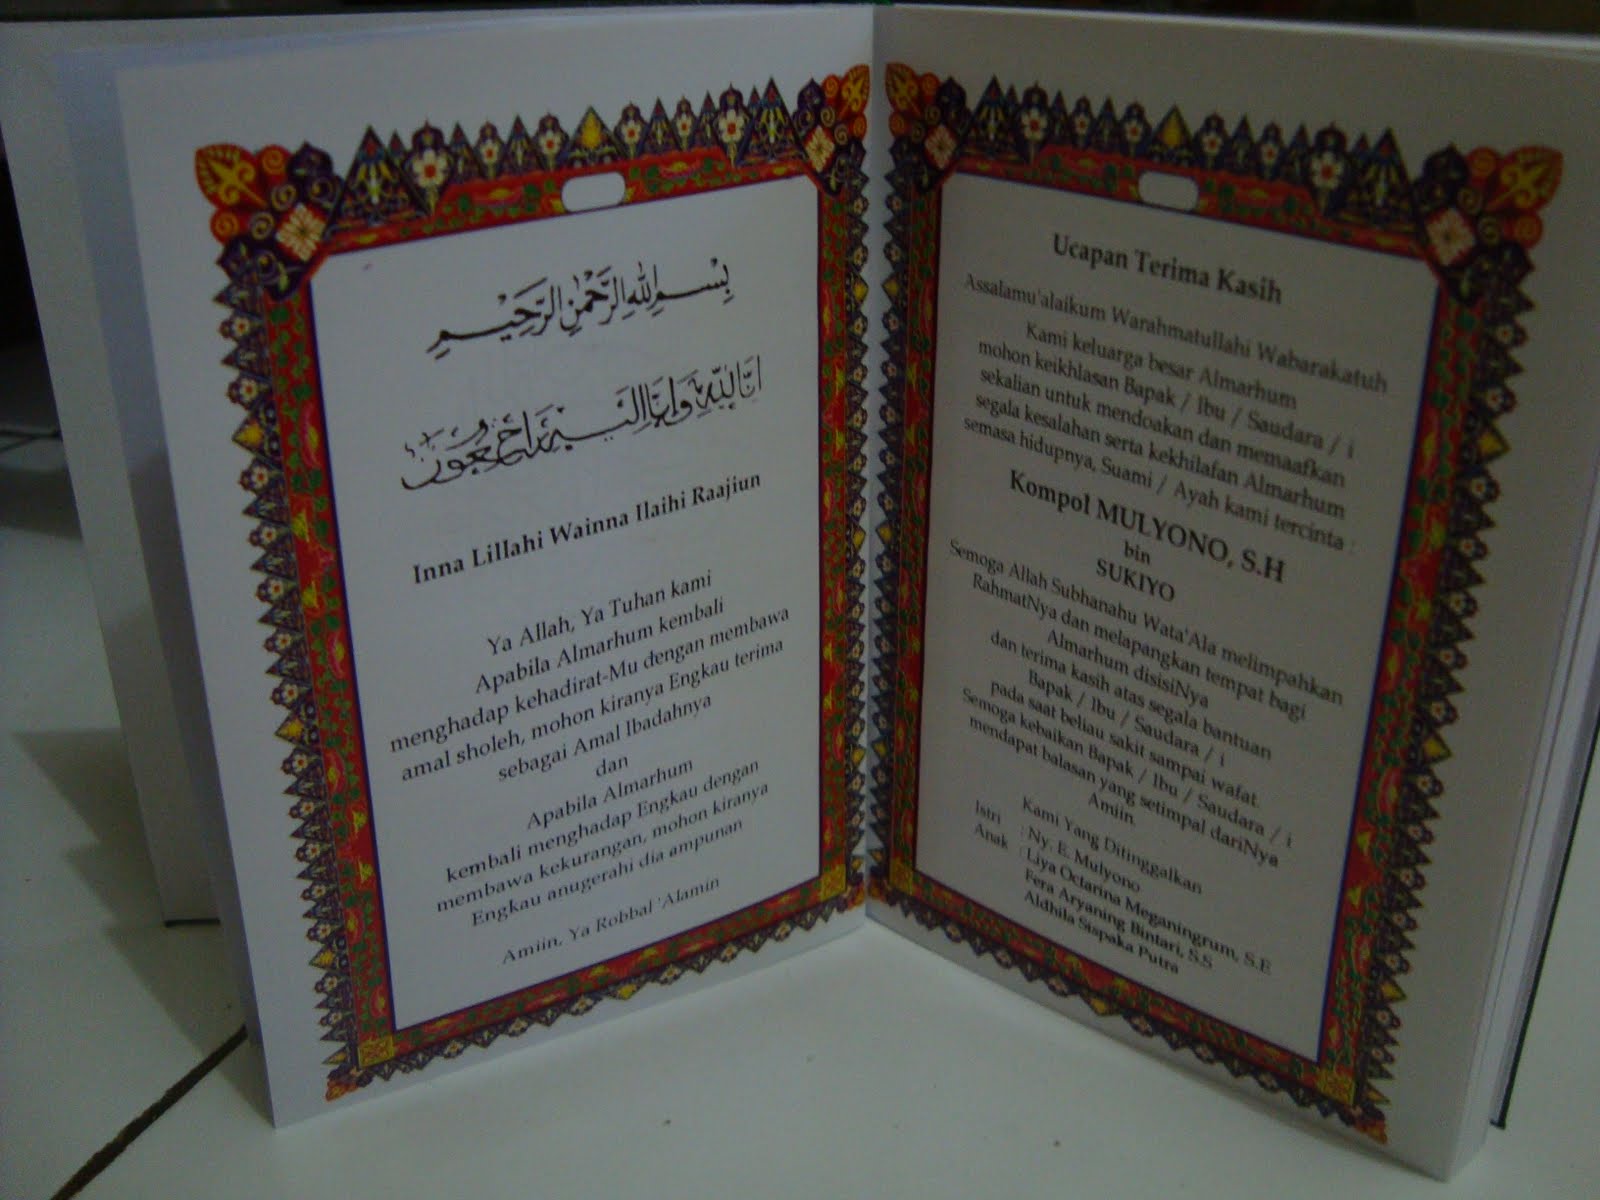 بِسْمِ اللهِ الرَّحْمٰنِ الرَّحِيْمِ
اِنَّا لِلّٰهِ وَاِنَّا اِلَيْهِ رَاجِعُوْنَ
Inna Lillahi Wainna Ilaihi Raajiun
Ya Allah, Ya Tuhan kami
Apabila Almarhum kembali
menghadap kehadirat-Mu dengan membawa
amal sholeh, mohon kiranya Engkau terima
sebagai Amal Ibadahnya
dan
Apabila Almarhum
kembali menghadap Engkau dengan
membawa kekurangan, mohon kiranya
Engkau anugerahi dia ampunan
Amiin, Ya Robbal 'Alamin
Ucapan Terima Kasih
Assalamu'alaikum Warahmatullahi Wabarakatuh
Kami keluarga besar Almarhum
mohon keikhlasan Bapak / Ibu / Saudara / i
sekalian untuk mendoakan dan memaafkan
segala kesalahan serta kekhilafan Almarhum
semasa hidupnya, Suami / Ayah kami tercinta :
Kompol MULYONO, S.H
bin
SUKIYO
Semoga Allah Subhanahu Wata'Ala melimpahkan
RahmatNya dan melapangkan tempat bagi
Almarhum disisiNya
dan terima kasih atas segala bantuan
Bapak / Ibu / Saudara / i
pada saat beliau sakit sampai wafat.
Semoga kebaikan Bapak / Ibu / Saudara / i
mendapat balasan yang setimpal dariNya
Amiin.
Kami Yang Ditinggalkan
Istri : Ny. E. Mulyono
Anak : Liya Octarina Meganingrum, S.E
Fera Aryaning Bintari, S.S
Aldhila Sispaka Putra